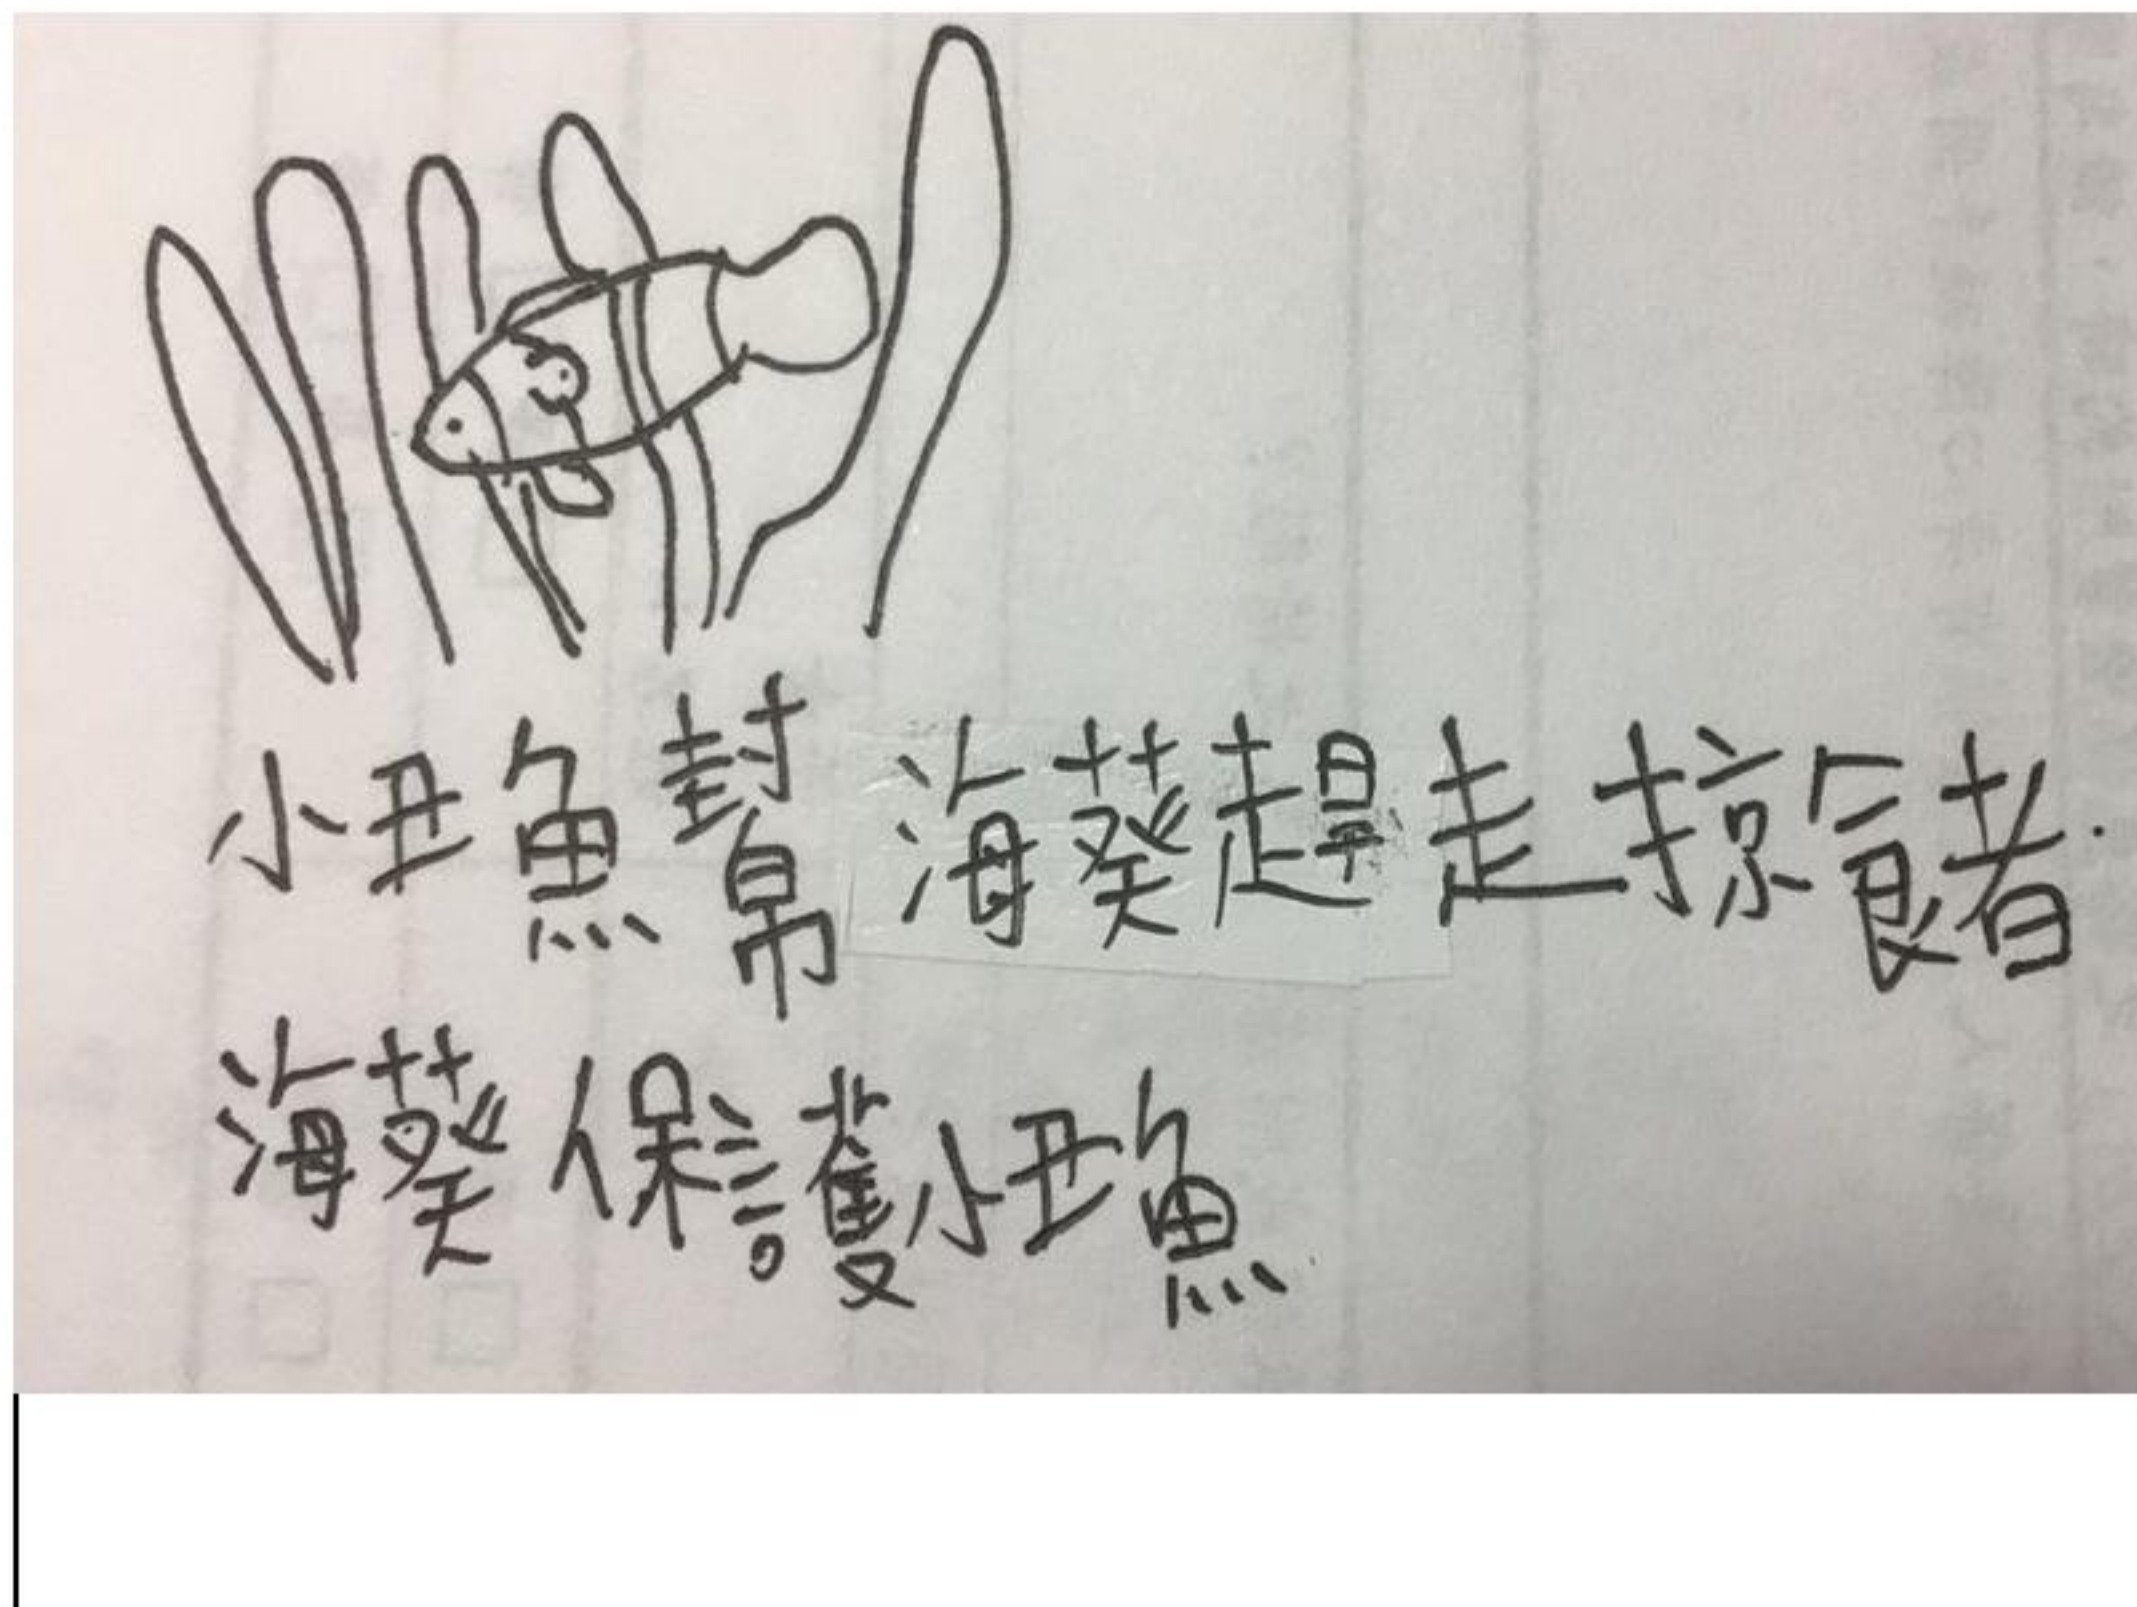 小丑魚幫海葵趕走掠食者
海葵保護小丑魚